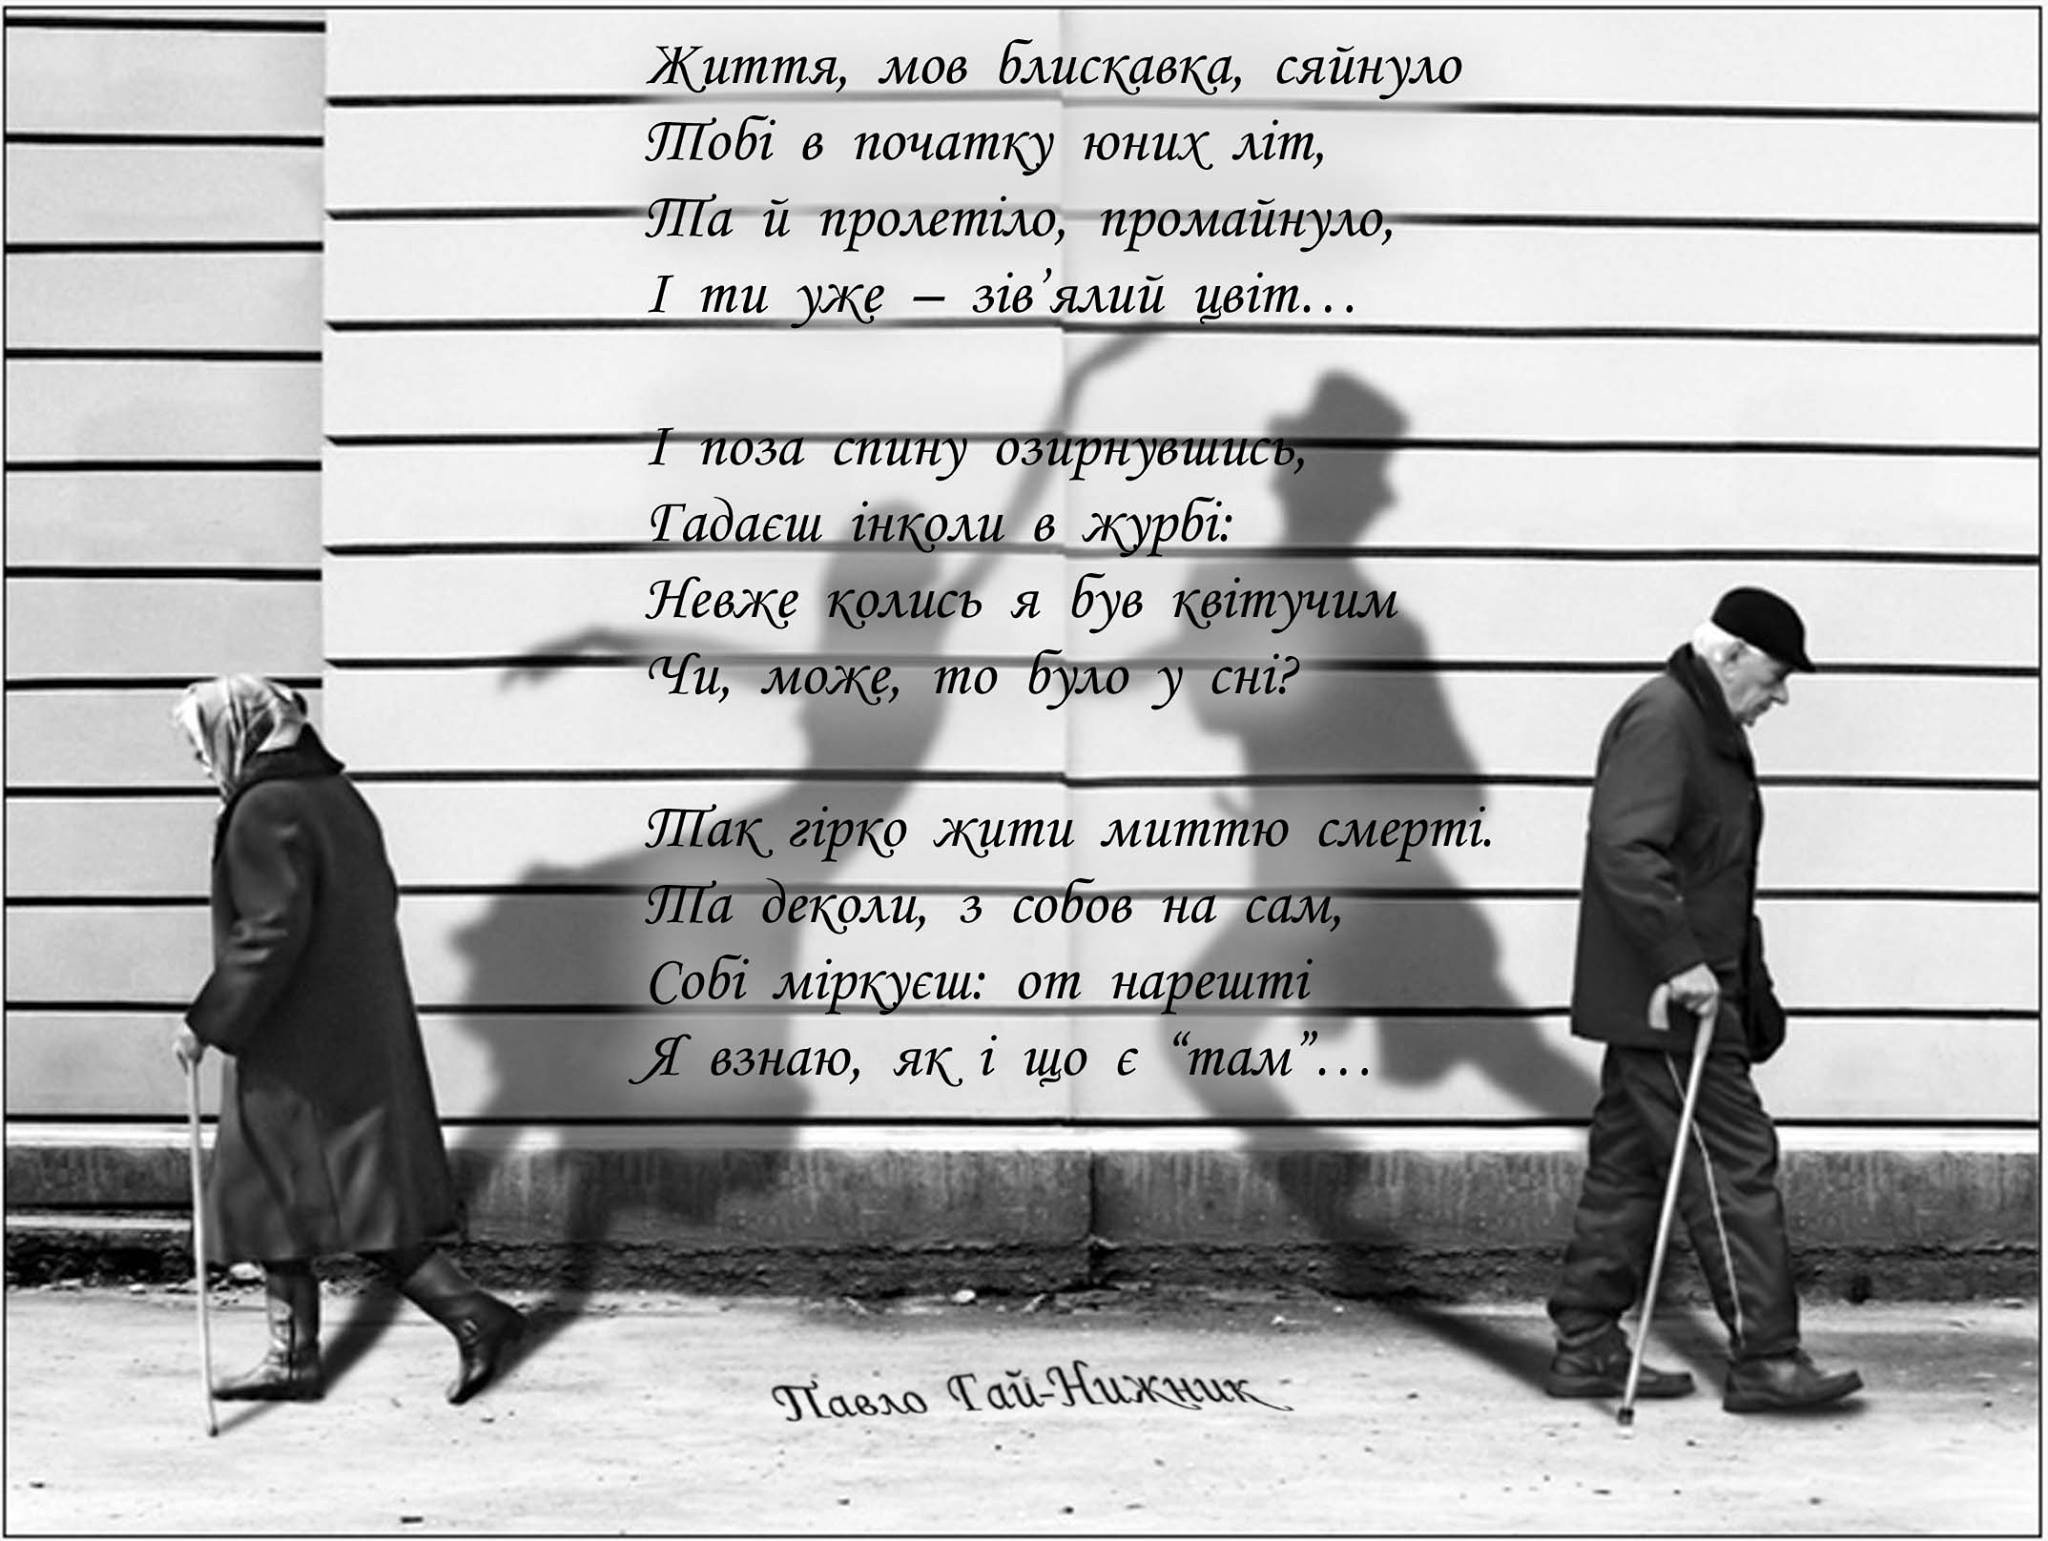 Життя, мов блискавка, сяйнуло
Тобі в початку юних літ,
Та й пролетіло, промайнуло,
І ти уже – зів’ялий цвіт…
І поза спину озирнувшись,
Гадаєш інколи в журбі:
Невже колись я був квітучим
Чи, може, то було у сні?
Так гірко жити миттю смерті.
Та деколи, з собов на сам,
Собі міркуєш: от нарешті
Я взнаю, як і що є “там”…
Павло Гай-Нижник